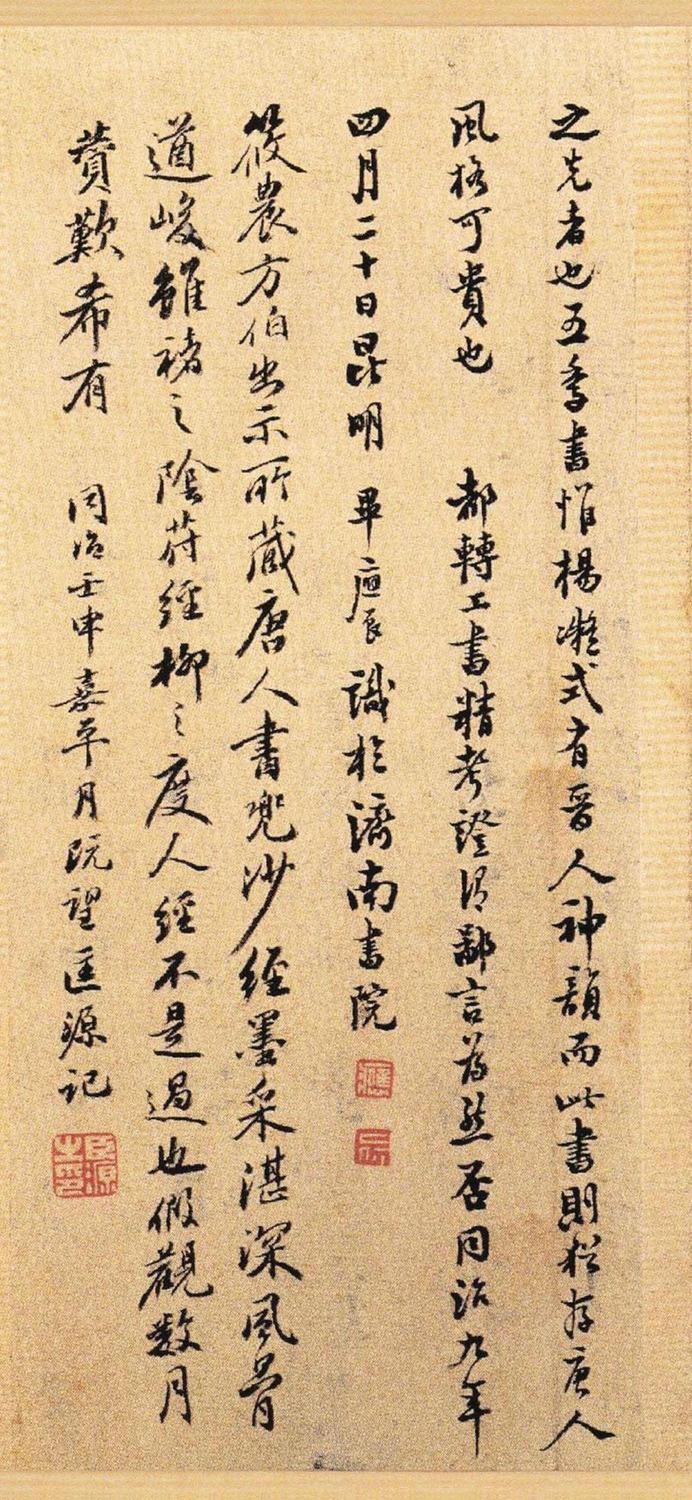 之先者也五季書惟楊凝式有晉人神韻而此書則猶存唐人
風格可貴也 都轉工書精考證得鄙言為然否同治九年
四月二十日昆明 畢應辰識於濟南書院
應 辰
筱農方伯出示所藏唐人書兜沙經墨采湛深風骨
遒峻雖褚之陰符經柳之度人經不是過也假觀數月
贊歎希有 同治壬申嘉平月既望匡源記
匡源之印